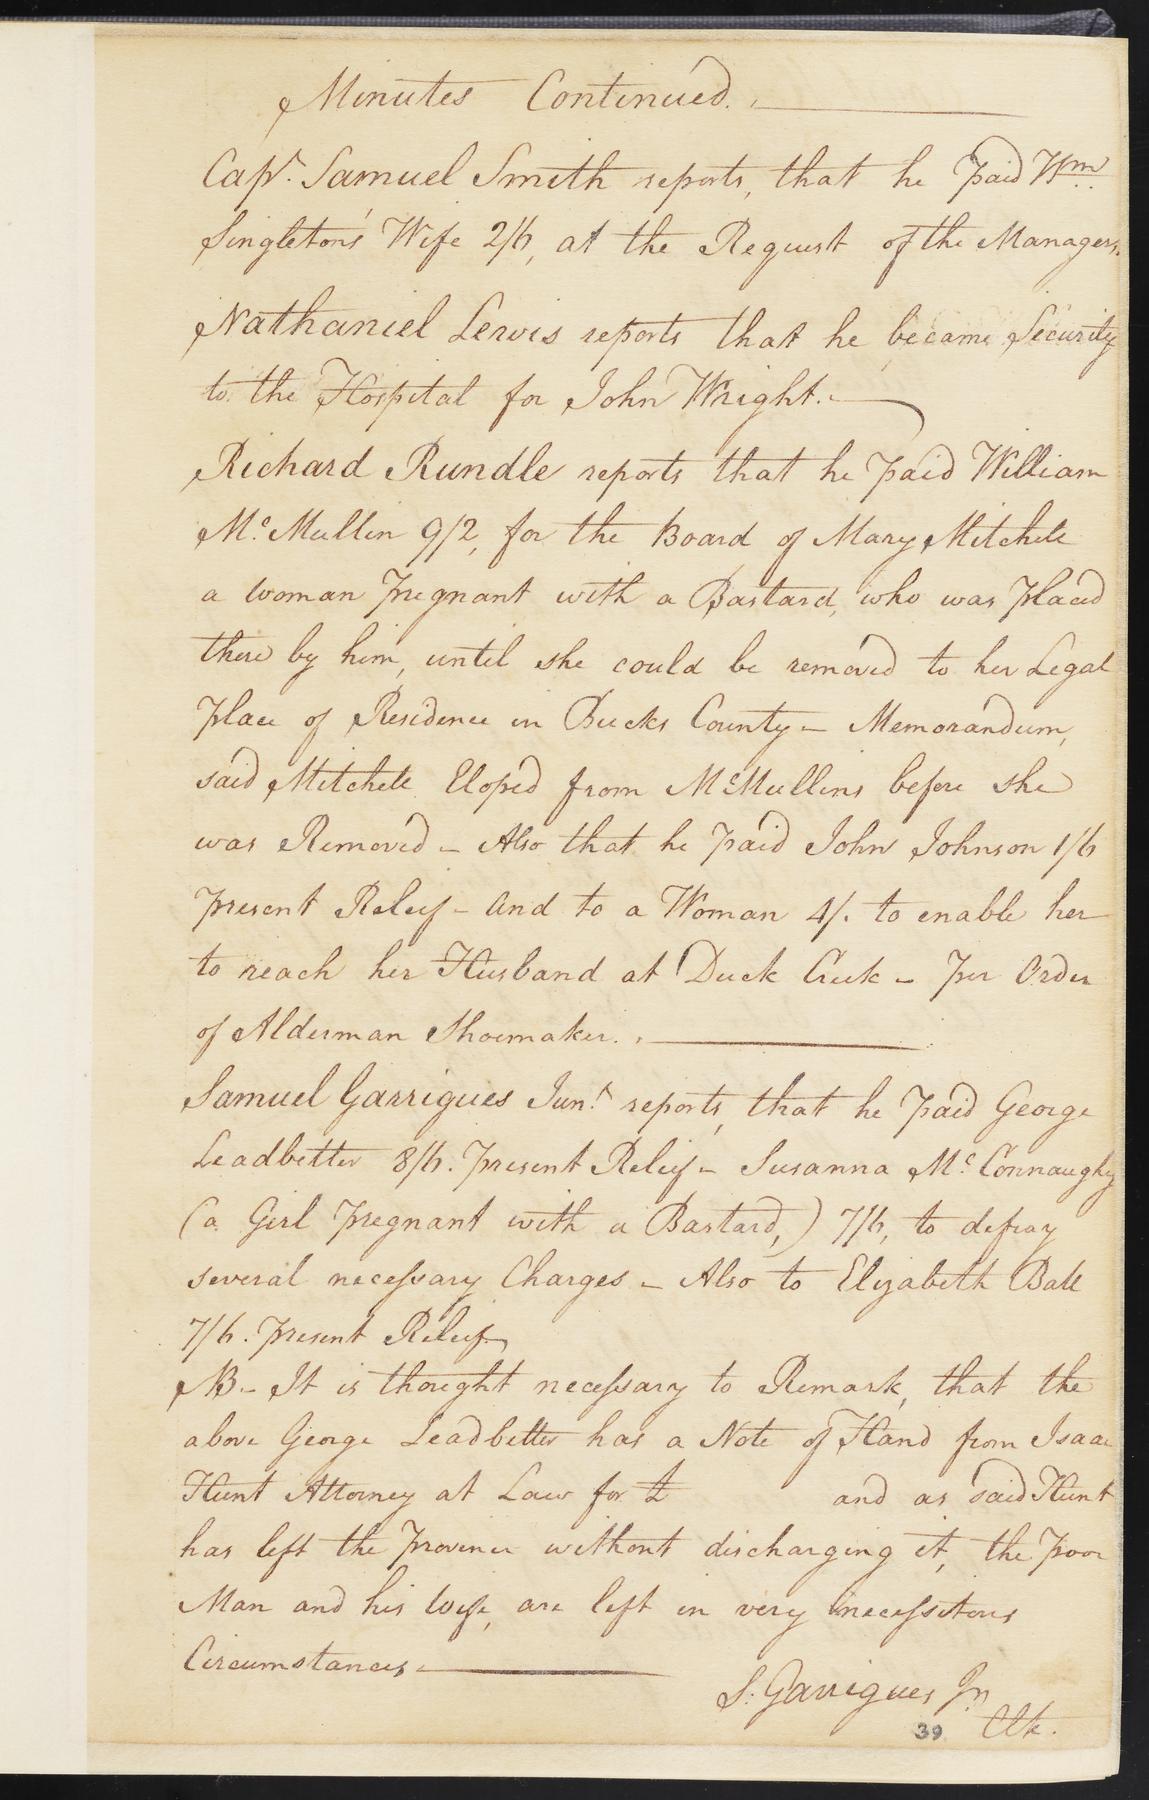 Minutes Continued.
Capt. Samuel Smith reports, that he paid Wm.
Singleton's Wife 2/6, at the Request of the Managers.
Nathaniel Lewis reports that he became Security
to the Hospital for John Wright.
Richard Rundle reports that he paid William
McMullin 9/2, for the Board of Mary Mitchele
a woman pregnant with a Bastard, who was placed
there by him, until she could be removed to her Legal
place of Residence in Bucks County — Memorandum,
said Mitchele Eloped from McMullins before she
was Removed — Also that he paid John Johnson 1/6
present Relief — and to a Woman 4/. to enable her
to reach her Husband at Duck Creek — per Order
of Alderman Shoemaker.
Samuel Garrigues Junr. reports, that he paid George
Leadbetter 8/6. present Relief — Susanna McConnaughy
(a Girl pregnant with a Bastard,) 7/6, to defray
several necessary Charges — Also to Elizabeth Ball
7/6. present Relief.
NB — It is thought necessary to Remark, that the
above George Leadbetter has a Note of Hand from Isaac
Hunt Attorney at Law for £ and as said Hunt
has left the province without discharging it, the poor
Man and his Wife, are left in very necessitous
Circumstances,
S. Garrigues Jn
39 Clk.